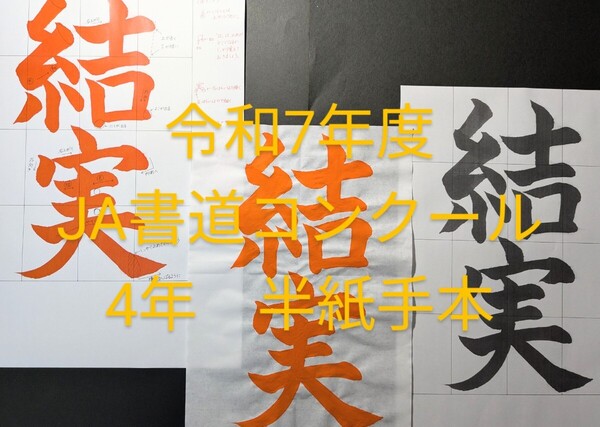 令和7年度
JA書道コンクール
4年 半紙手本
結実
結実
結実